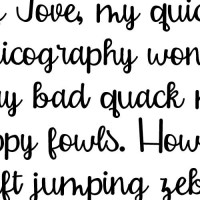 Jove, my quic
icography won
y bad quack
ppy fowls. How
ft jumping zeb